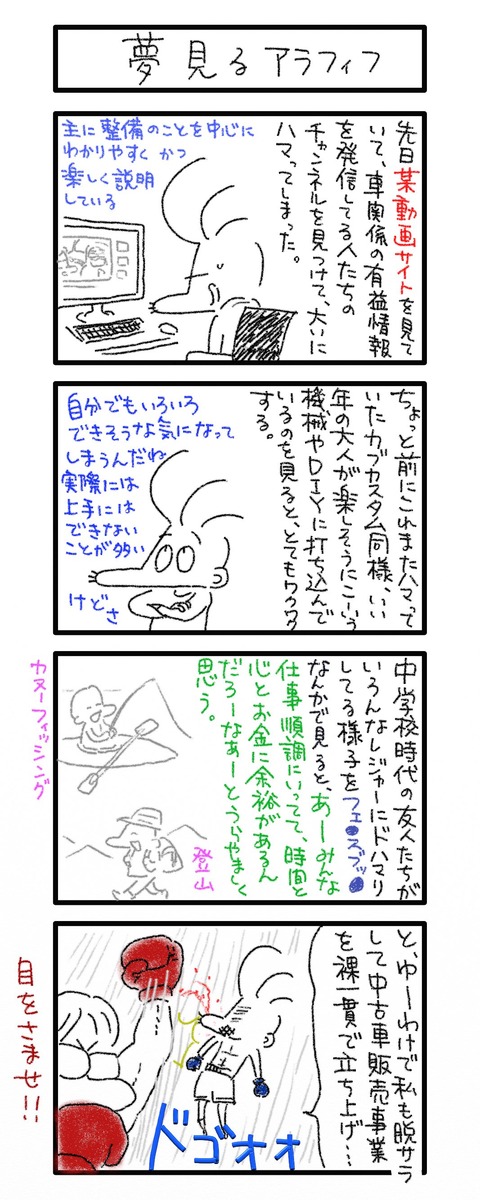 夢見るアラフィフ
先日某動画サイトを見て
いて、車関係の有益情報
を発信してる人たちの
チャンネルを見つけて、大いに
ハマってしまった。
主に整備のことを中心に
わかりやすく かつ
楽しく説明
している
ちょっと前にこれまたハマって
いたカブカスタム同様、いい
年の大人が楽しそうにこーいう
機械やDIYに打ち込んで
いるのを見ると、とてもワクワク
する。
自分でもいろいろ
できそうな気になって
しまうんだね
実際には
上手には
できない
ことが多い
けどさ
中学校時代の友人たちが
いろんなレジャーにドハマり
してる様子をフェ●スブッ●
なんかで見ると、あーみんな
仕事順調にいってて、時間と
心とお金に余裕があるん
だろーなぁーとうらやましく
思う。
カヌーフィッシング
登山
と、ゆーわけで私も脱サラ
して中古車販売事業
を裸一貫で立ち上げ…
ドゴォォ
目をさませ!!